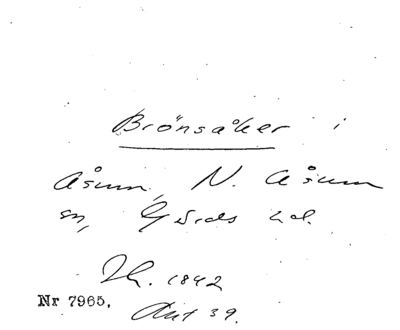 Brönsåker i
Åsum, N. Åsum
sn, Gärds hd.
Th. 1842
Nr 7965. Akt 39.